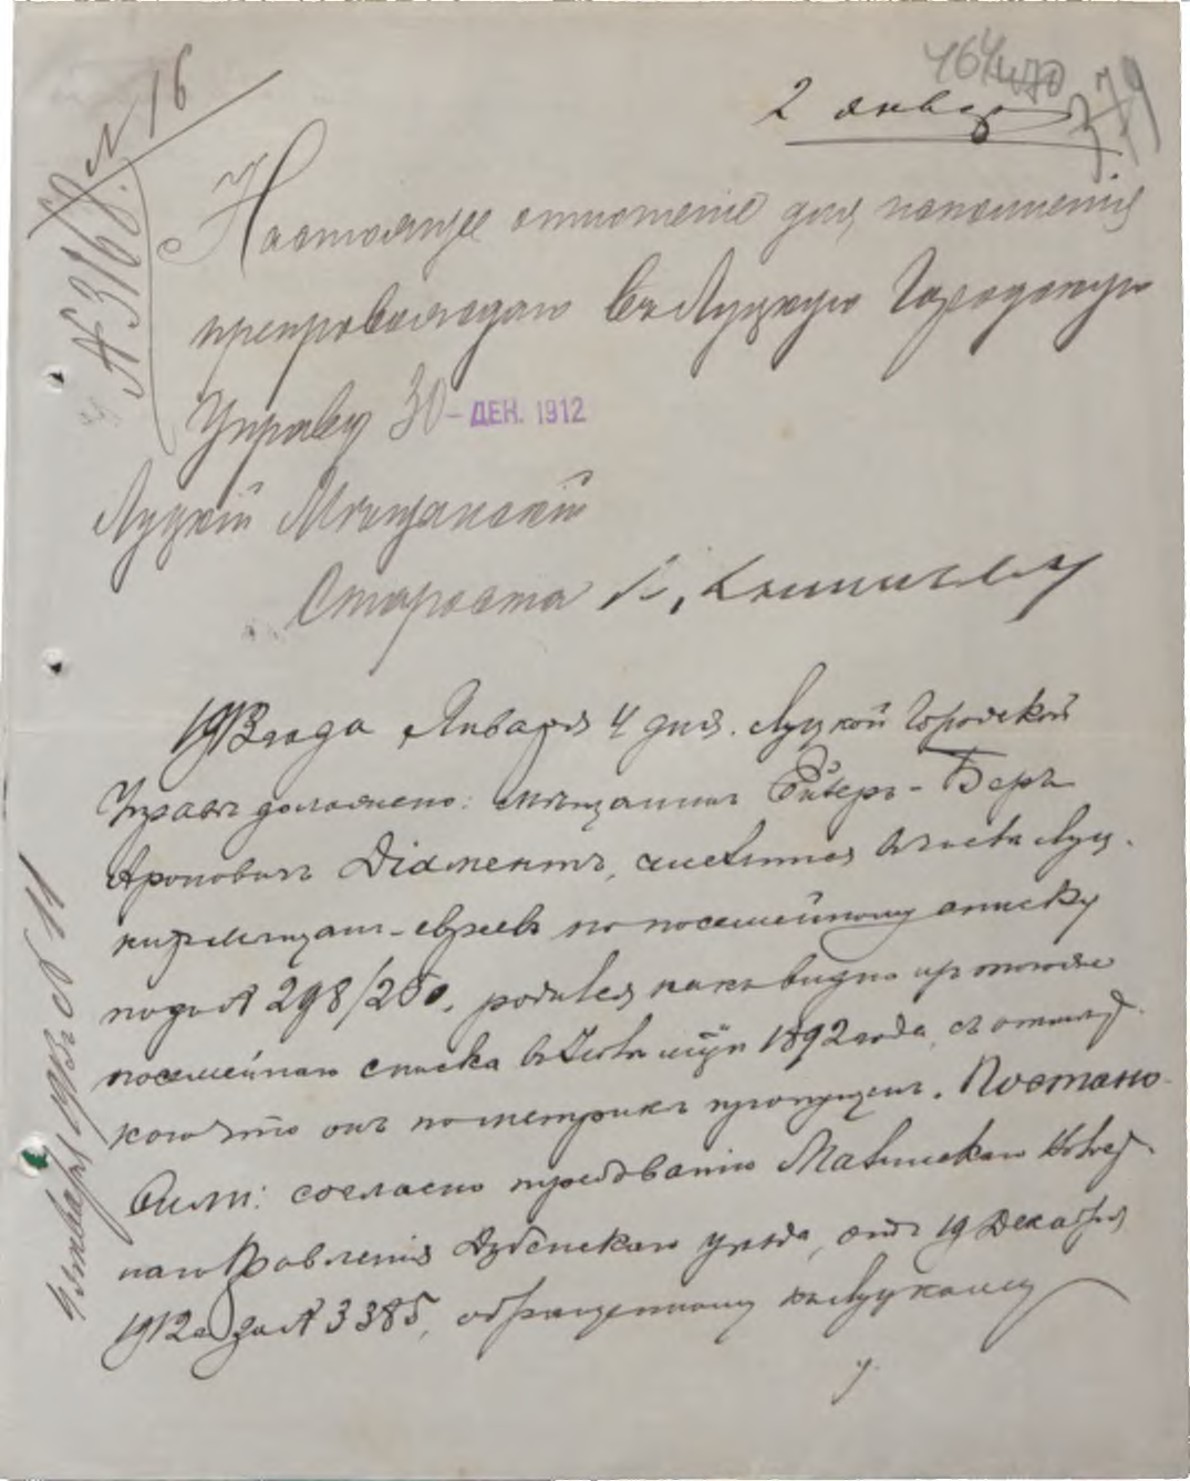 № 16
№ 3168.
2 января
379
Настоящее отношеніе для исполненія
препровождаю въ Луцкую Городскую
Управу 30 - ДЕН. 1912
Луцкій Мѣщанскій
Староста
1913 года Января 4 дня. Луцкой Городской
Управѣ доложено: мѣщанинъ -Беръ
Ароновичъ Діаментъ, числится въ числѣ Луц-
кихъ мѣщанъ-евреевъ по посемейному списку
подъ № 298/250, родился какъ видно
посемейнаго списка 1892 года, съ отмѣт-
кою что онъ по метрикѣ пропущенъ. Постано-
вили: согласно требованію Волост-
наго Правленія Дубенскаго уѣзда, отъ 19 Декабря
1912 г. за № 3385, обращенному къ Луцкому
4 Января 1913 г. № 11